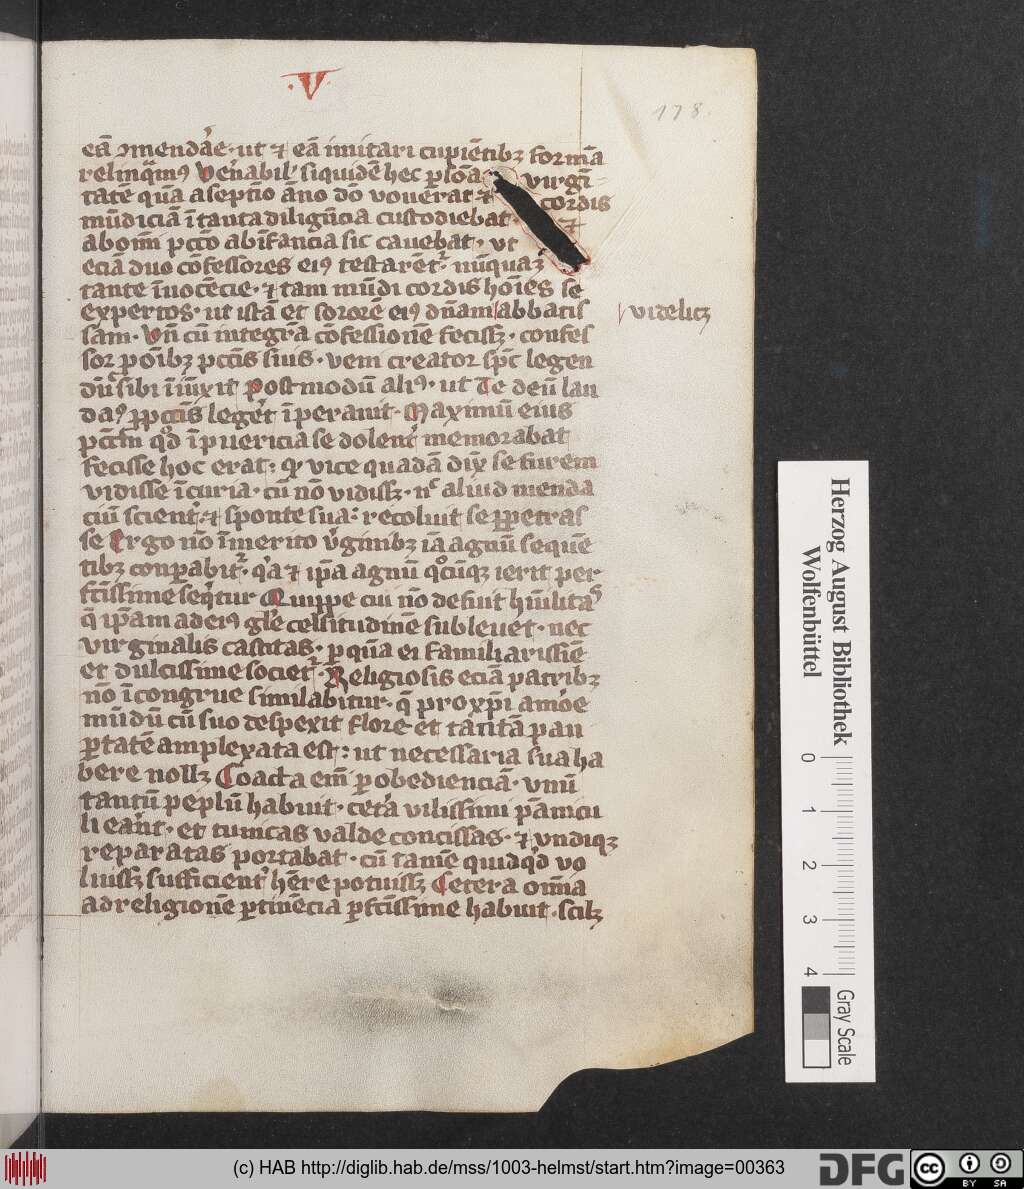 .V.
178.
eā ↄmendāe· ut ⁊ eā imitari cupiētibꝫ formā
relinqͣmꝰ Venabil' siquidē hec ꝑsōa virgi-
tatē quā a septīo āno dō vouerat ⁊ cordis
mūdiciā ī tanta diligēcia custodiebat· ⁊
ab om̄i pctō ab īfancia sic cauebat· vt
eciā duo cōfessores eiꝰ testarēt᷑ nūquaꝫ
tante īnocēcie· ⁊ tam mūdi cordis hoīes se
expertos· ut istā et sororē eiꝰ dn̄am abbatis
videlicꝫ
sam· Vn̄ cū integrā cōfessionē fecissꝫ· confes
sor ꝓ oībꝫ pctīs suis· veni creator sp̄c legen
dū sibi īiūxit Postmodū aliꝰ· ut Te deū lau
daꝰ ꝓ pctīs leget īperauit· Maximū eius
pctm̄ qd̓ ī puericia se dolent memorabat
fecisse hoc erat· ꝙ vice quadā dix̄ se furem
vidisse ī curia· cū nō vidissꝫ· nc̄ aliud menda
ciū scient᷑ ⁊ sponte sua· recoluit se ꝑpetras
se Ergo nō īmerito v̓ginibꝫ iā agnū sequē
tibꝫ conꝑabit᷑· qͥa ⁊ ip̄a agnū qͦcūqꝫ ierit per
fc̄issime seqͥtur Quippe cui nō defuit hūilitaˢ
q̄ ip̄am ad eiꝰ gl̄e celsitudinē subleuet· nec
virginalis castitas· ꝑ quā ei familiarissīe
et dulcissime societ᷑· Religiosis eciā patribꝫ
nō īcongrue similabitur· q̄ pro xp̄i amōe
mūdū cū suo despexit flore· et tātā pau
ꝑtatē amplexata est· ut necessaria sua ha
bere nollꝫ Coacta em̄ ꝑ obedienciā· vnū
tantū peplū habuit· cetā vilissimi pāmicu
li eānt· et tunicas valde concissas· ⁊ vndiqꝫ
reparatas portabat· cū tamē quidqͥd vo
luissꝫ sufficient᷑ hēre potuissꝫ Cetera om̄ia
ad religionē ꝑtinēcia ꝑfc̄issime habuit· scilꝫ
Herzog August Bibliothek
Wolfenbüttel
0 1 2 3 4
Gray Scale
(c) HAB http://diglib.hab.de/mss/1003-helmst/start.htm?image=00363
DFG
cc BY SA